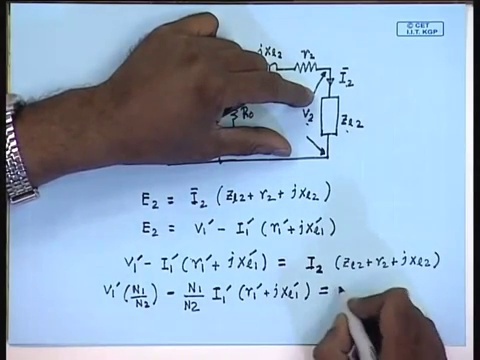 © CET
I.I.T. KGP
jxl2 r2
Ī2
R0 V2 Zl2
E2 = Ī2 (Zl2 + r2 + jxl2)
E2 = V1' - I1' (r1' + jxl1')
V1' - I1' (r1' + jxl1') = I2 (Zl2 + r2 + jxl2)
V1' (N1/N2) - N1/N2 I1' (r1' + jxl1') =